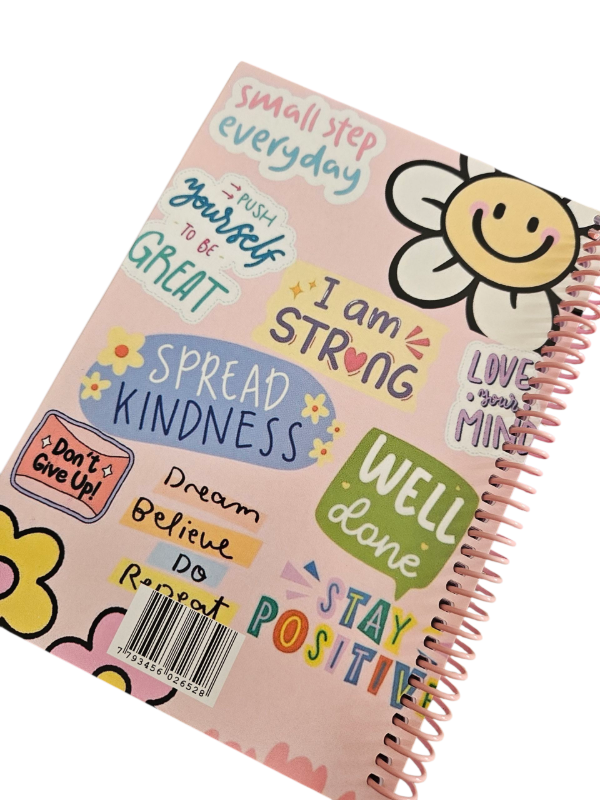 small step
everyday
PUSH
yourself
TO BE
GREAT
I am
STRONG
SPREAD
KINDNESS
LOVE
your
MIND
Don't
Give Up!
WELL
done
Dream
Believe
Do
Repeat
STAY
POSITIVE
7 793456 026528